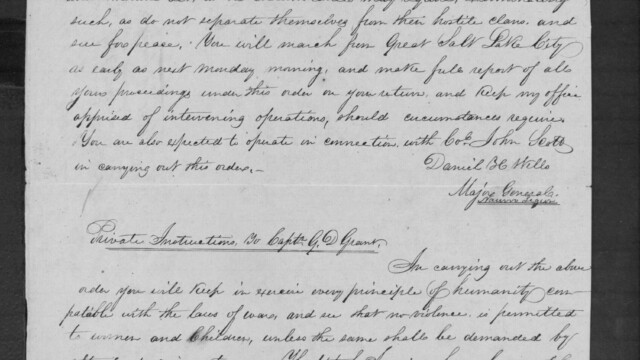 such, as do not separate themselves from their hostile clans. and
sue for peace. You will march from Great Salt Lake City
as early as next Monday morning, and make full report of all
your proceedings under this order on your return, and Keep my office
apprised of intervening operations, should circumstances require.
You are also expected to operate in connection with Col. John Scott
in carrying out this order.
Daniel H. Wells
Major General
Nauvoo Legion
Private Instructions, To Capt. G. D. Grant.
In carrying out the above
order you will Keep in exercise every principle of humanity com-
patable with the laws of war, and see that no violence is permitted
to women and Children, unless the same shall be demanded by